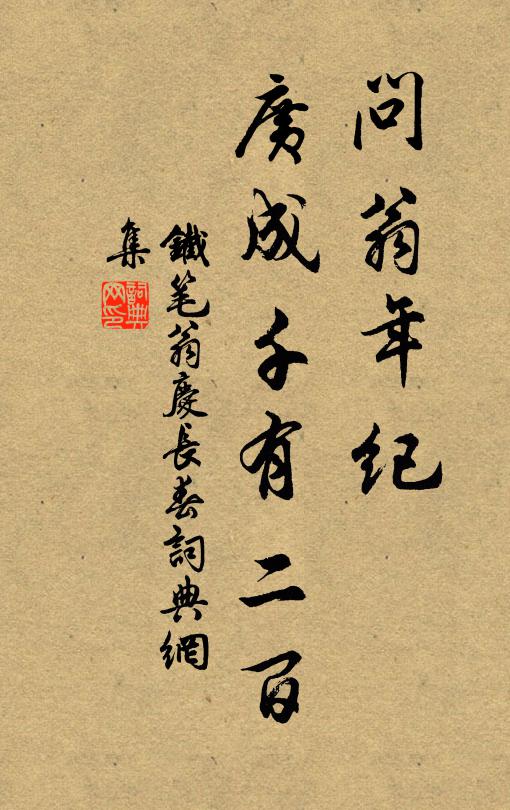 問翁年紀
廣成千有二百
鐵笔翁慶長春詞典網
集
詞典
网印